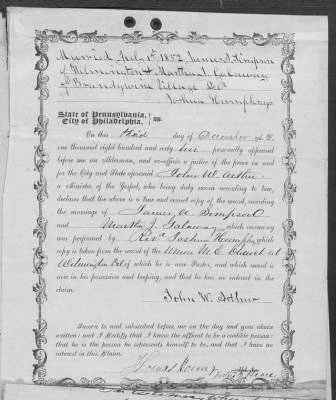 Married July 1st 1852 James A. Simpson
of Wilmington & Martha J. Galaway
of Brandywine Village Del
Joshua Humphreys
State of Pennsylvania,
City of Philadelphia.
On this Third day of December A.D.
one thousand eight hundred and sixty personally appeared
before me an Alderman, and ex-officio a justice of the peace in and
for the City and State aforesaid John W. Arthur
a Minister of the Gospel, who being duly sworn according to law,
declares that the above is a true and correct copy of the record, recording
the marriage of James A. Simpson
and Martha J. Galaway which ceremony
was performed by Revd. Joshua Humphreys which
copy is taken from the record of the Union M. E. Church at
Wilmington Del of which he is now Pastor, and which record is
now in his possession and keeping, and that he has no interest in the
claim.
John W. Arthur
Sworn to and subscribed before me on the day and year above
written: and I Certify that I know the affiant to be a credible person:
that he is the person he represents himself to be, and that I have no
interest in this Claim.
Thomas